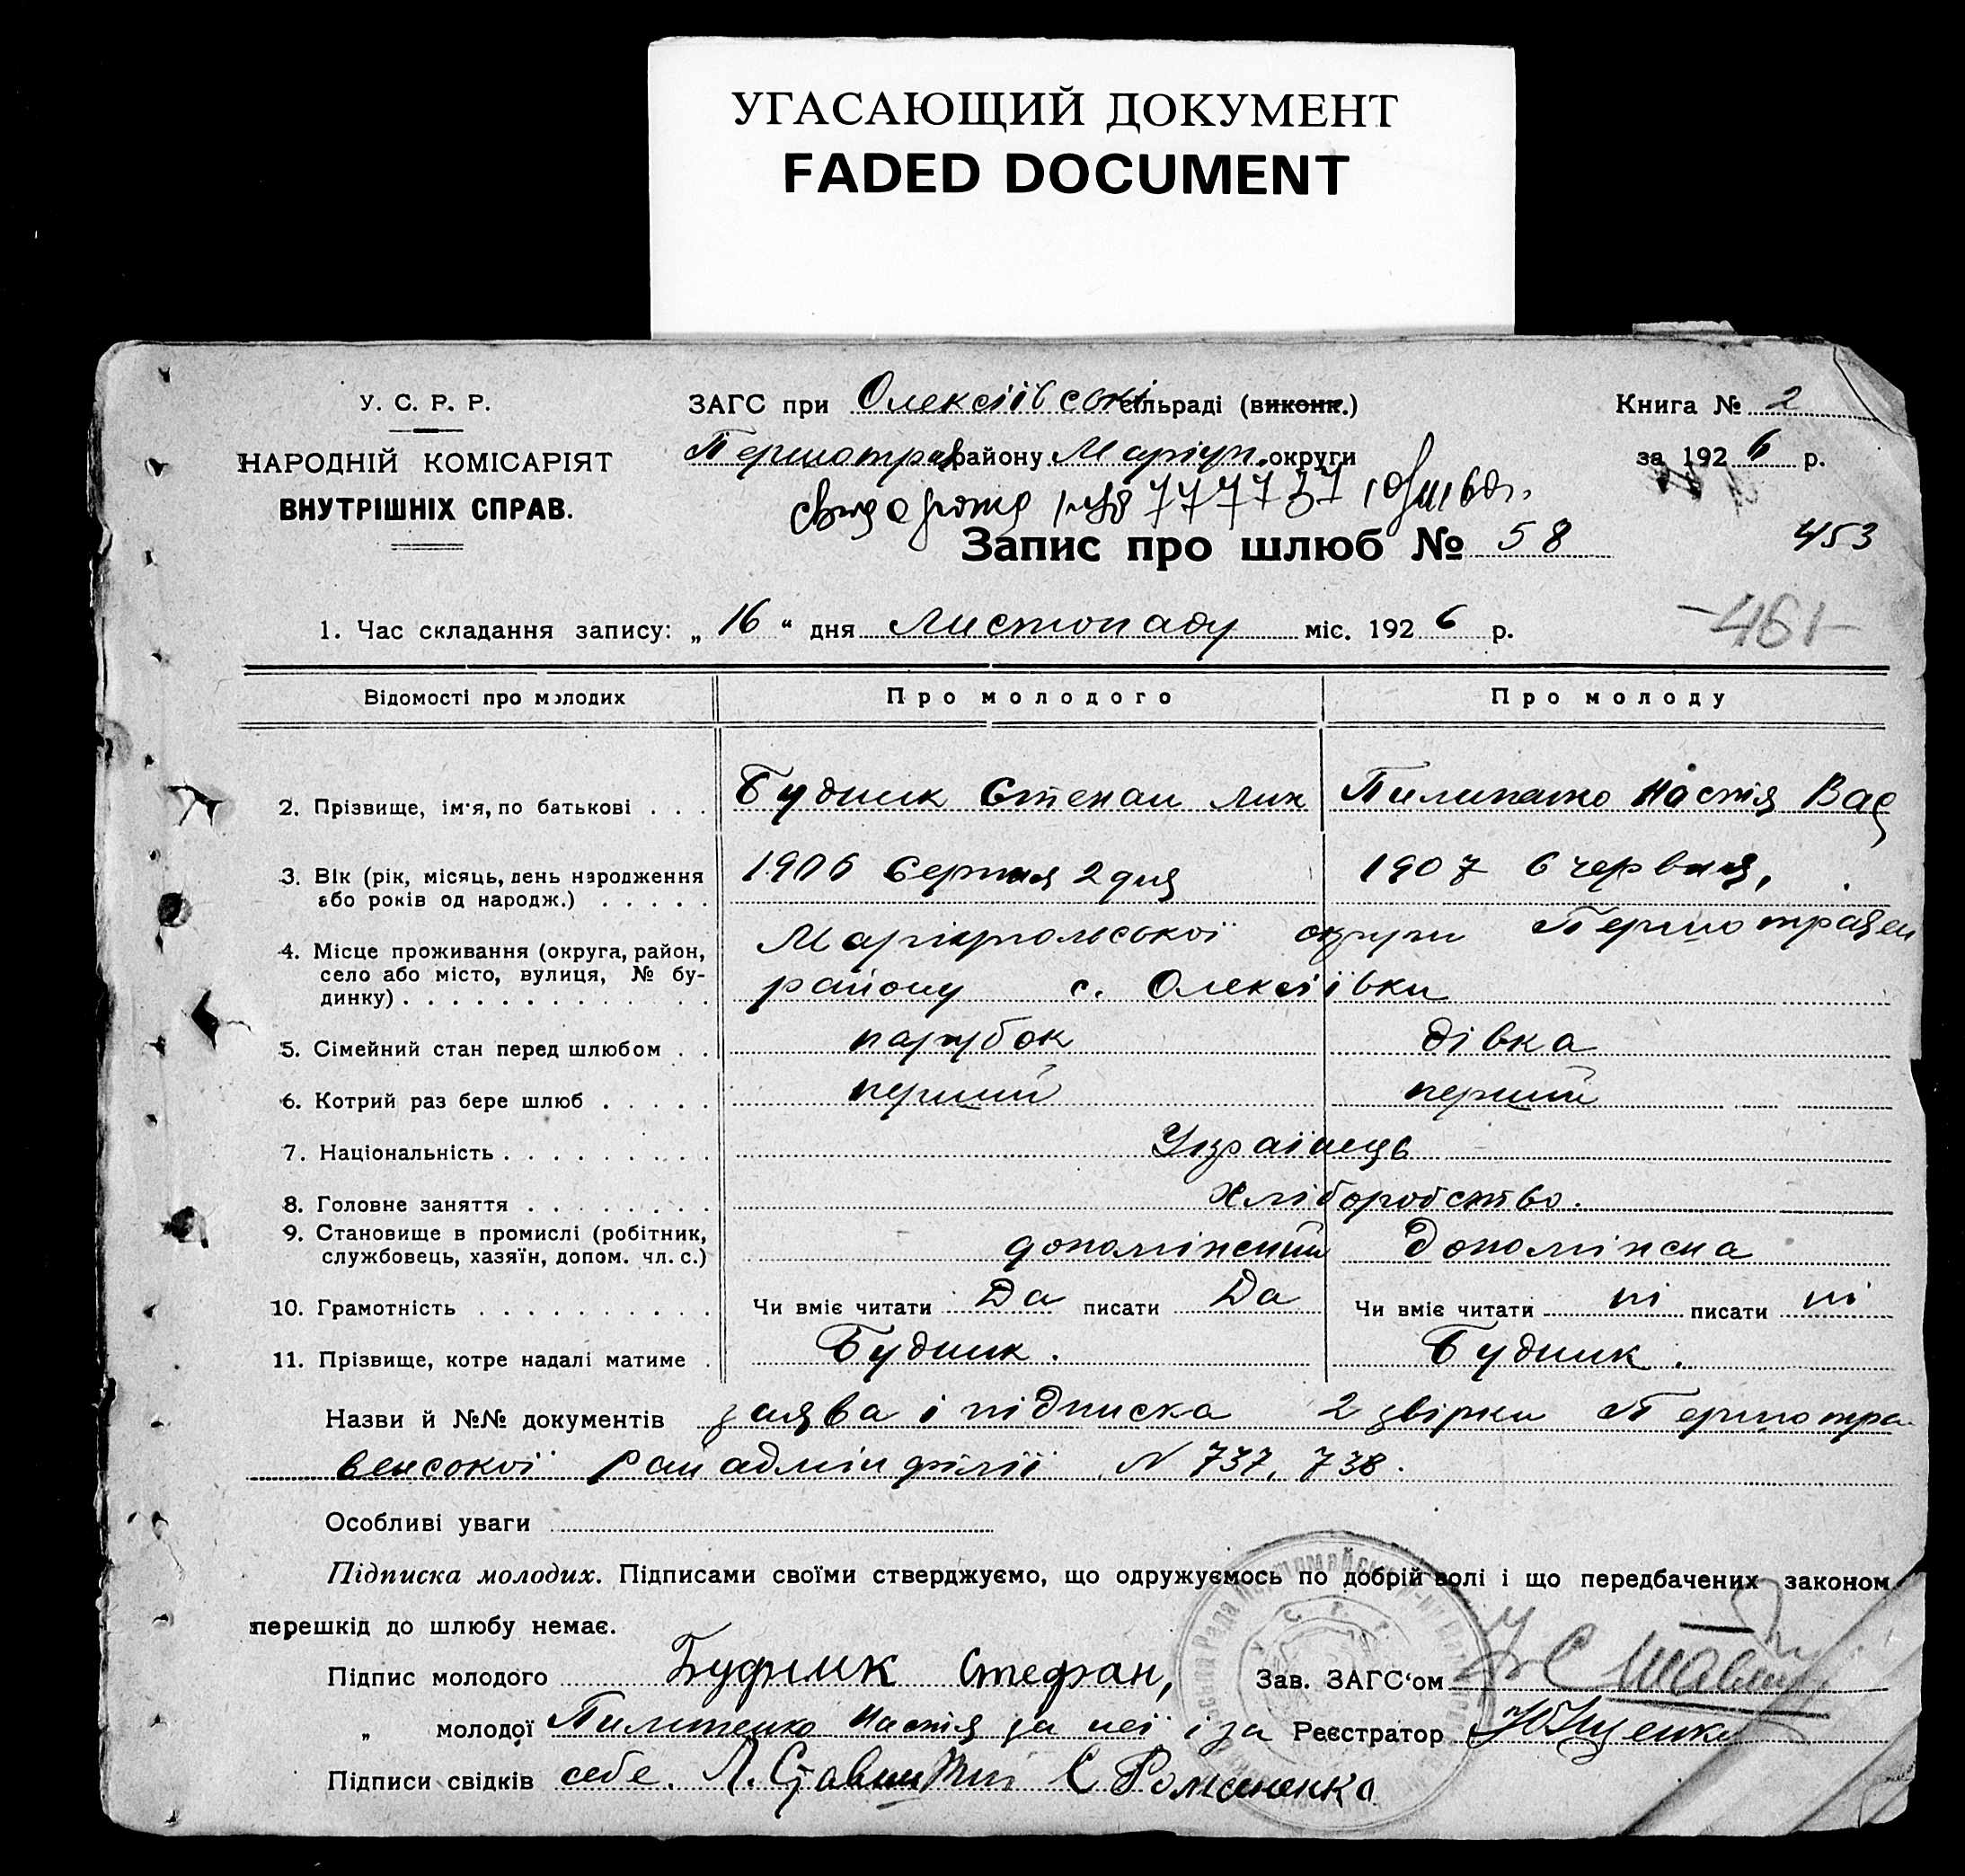 УГАСАЮЩИЙ ДОКУМЕНТ
FADED DOCUMENT
У. С. Р. Р.
НАРОДНІЙ КОМІСАРІЯТ
ВНУТРІШНІХ СПРАВ.
ЗАГС при Олексіївській сільраді (виконк.)
Першотрав району Маріуп. округи
Книга № 2
за 1926 р.
777737
Запис про шлюб № 58
453
1. Час складання запису: „ 16 “ дня Листопаду міс. 1926 р.
-461-
Відомості про молодих Про молодого Про молоду
2. Прізвище, ім'я, по батькові . . . Будник Степан Мих Настя Вас
3. Вік (рік, місяць, день народження 1906 Серпня 2 дня 1907 6 червня,
або років од народж.) . . . . .
4. Місце проживання (округа, район, Маріюпольської округи Першотравен
село або місто, вулиця, № бу- району с. Олексіївки
динку) . . . . . . . . . . . .
5. Сімейний стан перед шлюбом . . парубок дівка
6. Котрий раз бере шлюб . . . . . перший перший
7. Національність . . . . . . . . . Українець
8. Головне заняття . . . . . . . . Хліборобство.
9. Становище в промислі (робітник,
службовець, хазяїн, допом. чл. с.)
10. Грамотність . . . . . . . . . . Чи вміє читати Да писати Да Чи вміє читати ні писати ні
11. Прізвище, котре надалі матиме . Будник. Будник.
Назви й №№ документів заява і підписка 2 звірки Першотра
венської райадмінфілії N 737, 738.
Особливі уваги
Підписка молодих. Підписами своїми стверджуємо, що одружуємось по добрій волі і що передбачених законом
перешкід до шлюбу немає.
Підпис молодого Будник Стефан, Зав. ЗАГС'ом
„ молодої Настя за неї і за Реєстратор
Підписи свідків себе. Романенко